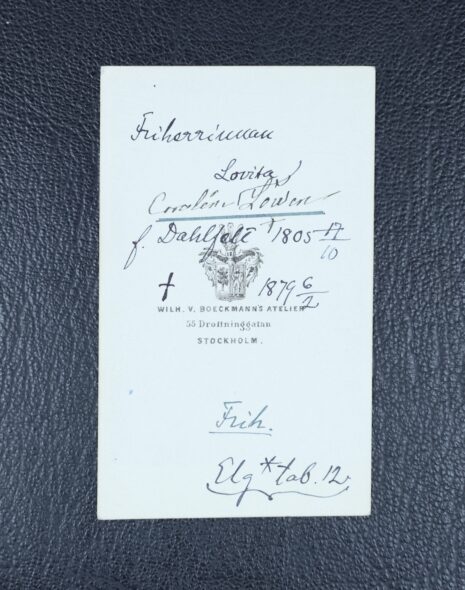 Friherrinnan
Lovita
Löwen
f. Dahlfelt 1805 17/10
† 1879 6/2
WILH. V. BOECKMANN'S ATELIER
55 Drottninggatan
STOCKHOLM.
Frih.
Elg * tab. 12.